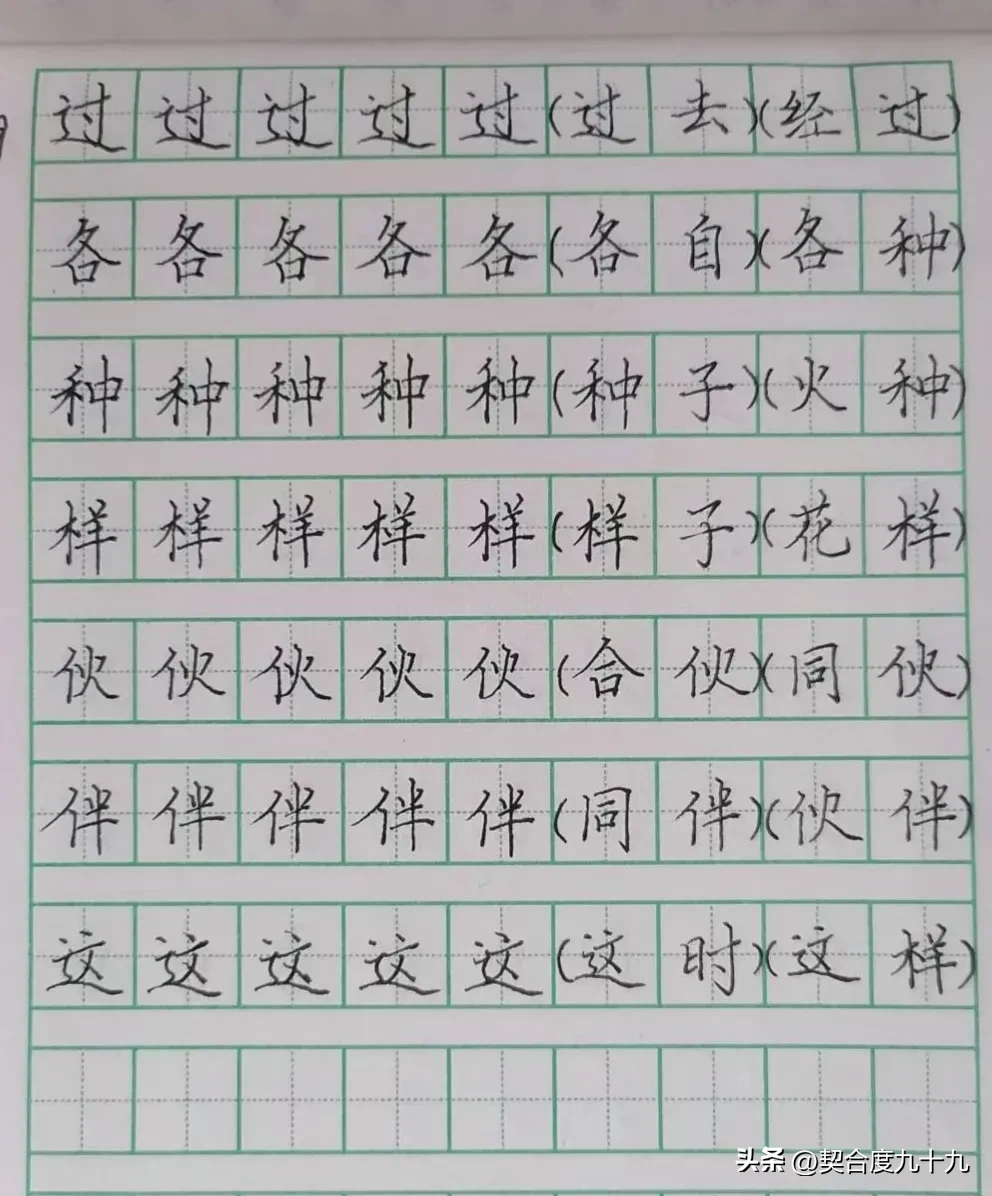 过过过过过(过去)(经过)
各各各各各(各自)(各种)
种种种种种(种子)(火种)
样样样样样(样子)(花样)
伙伙伙伙伙(合伙)(同伙)
伴伴伴伴伴(同伴)(伙伴)
这这这这这(这时)(这样)
头条 @契合度九十九